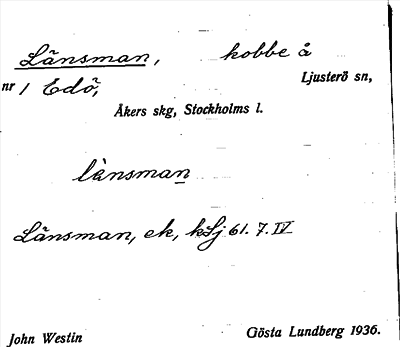 Länsman, kobbe å
nr 1 Edö, Ljusterö sn,
Åkers skg, Stockholms l.
lànsman
Länsman, ek, kLj 61. 7. IV
John Westin Gösta Lundberg 1936.